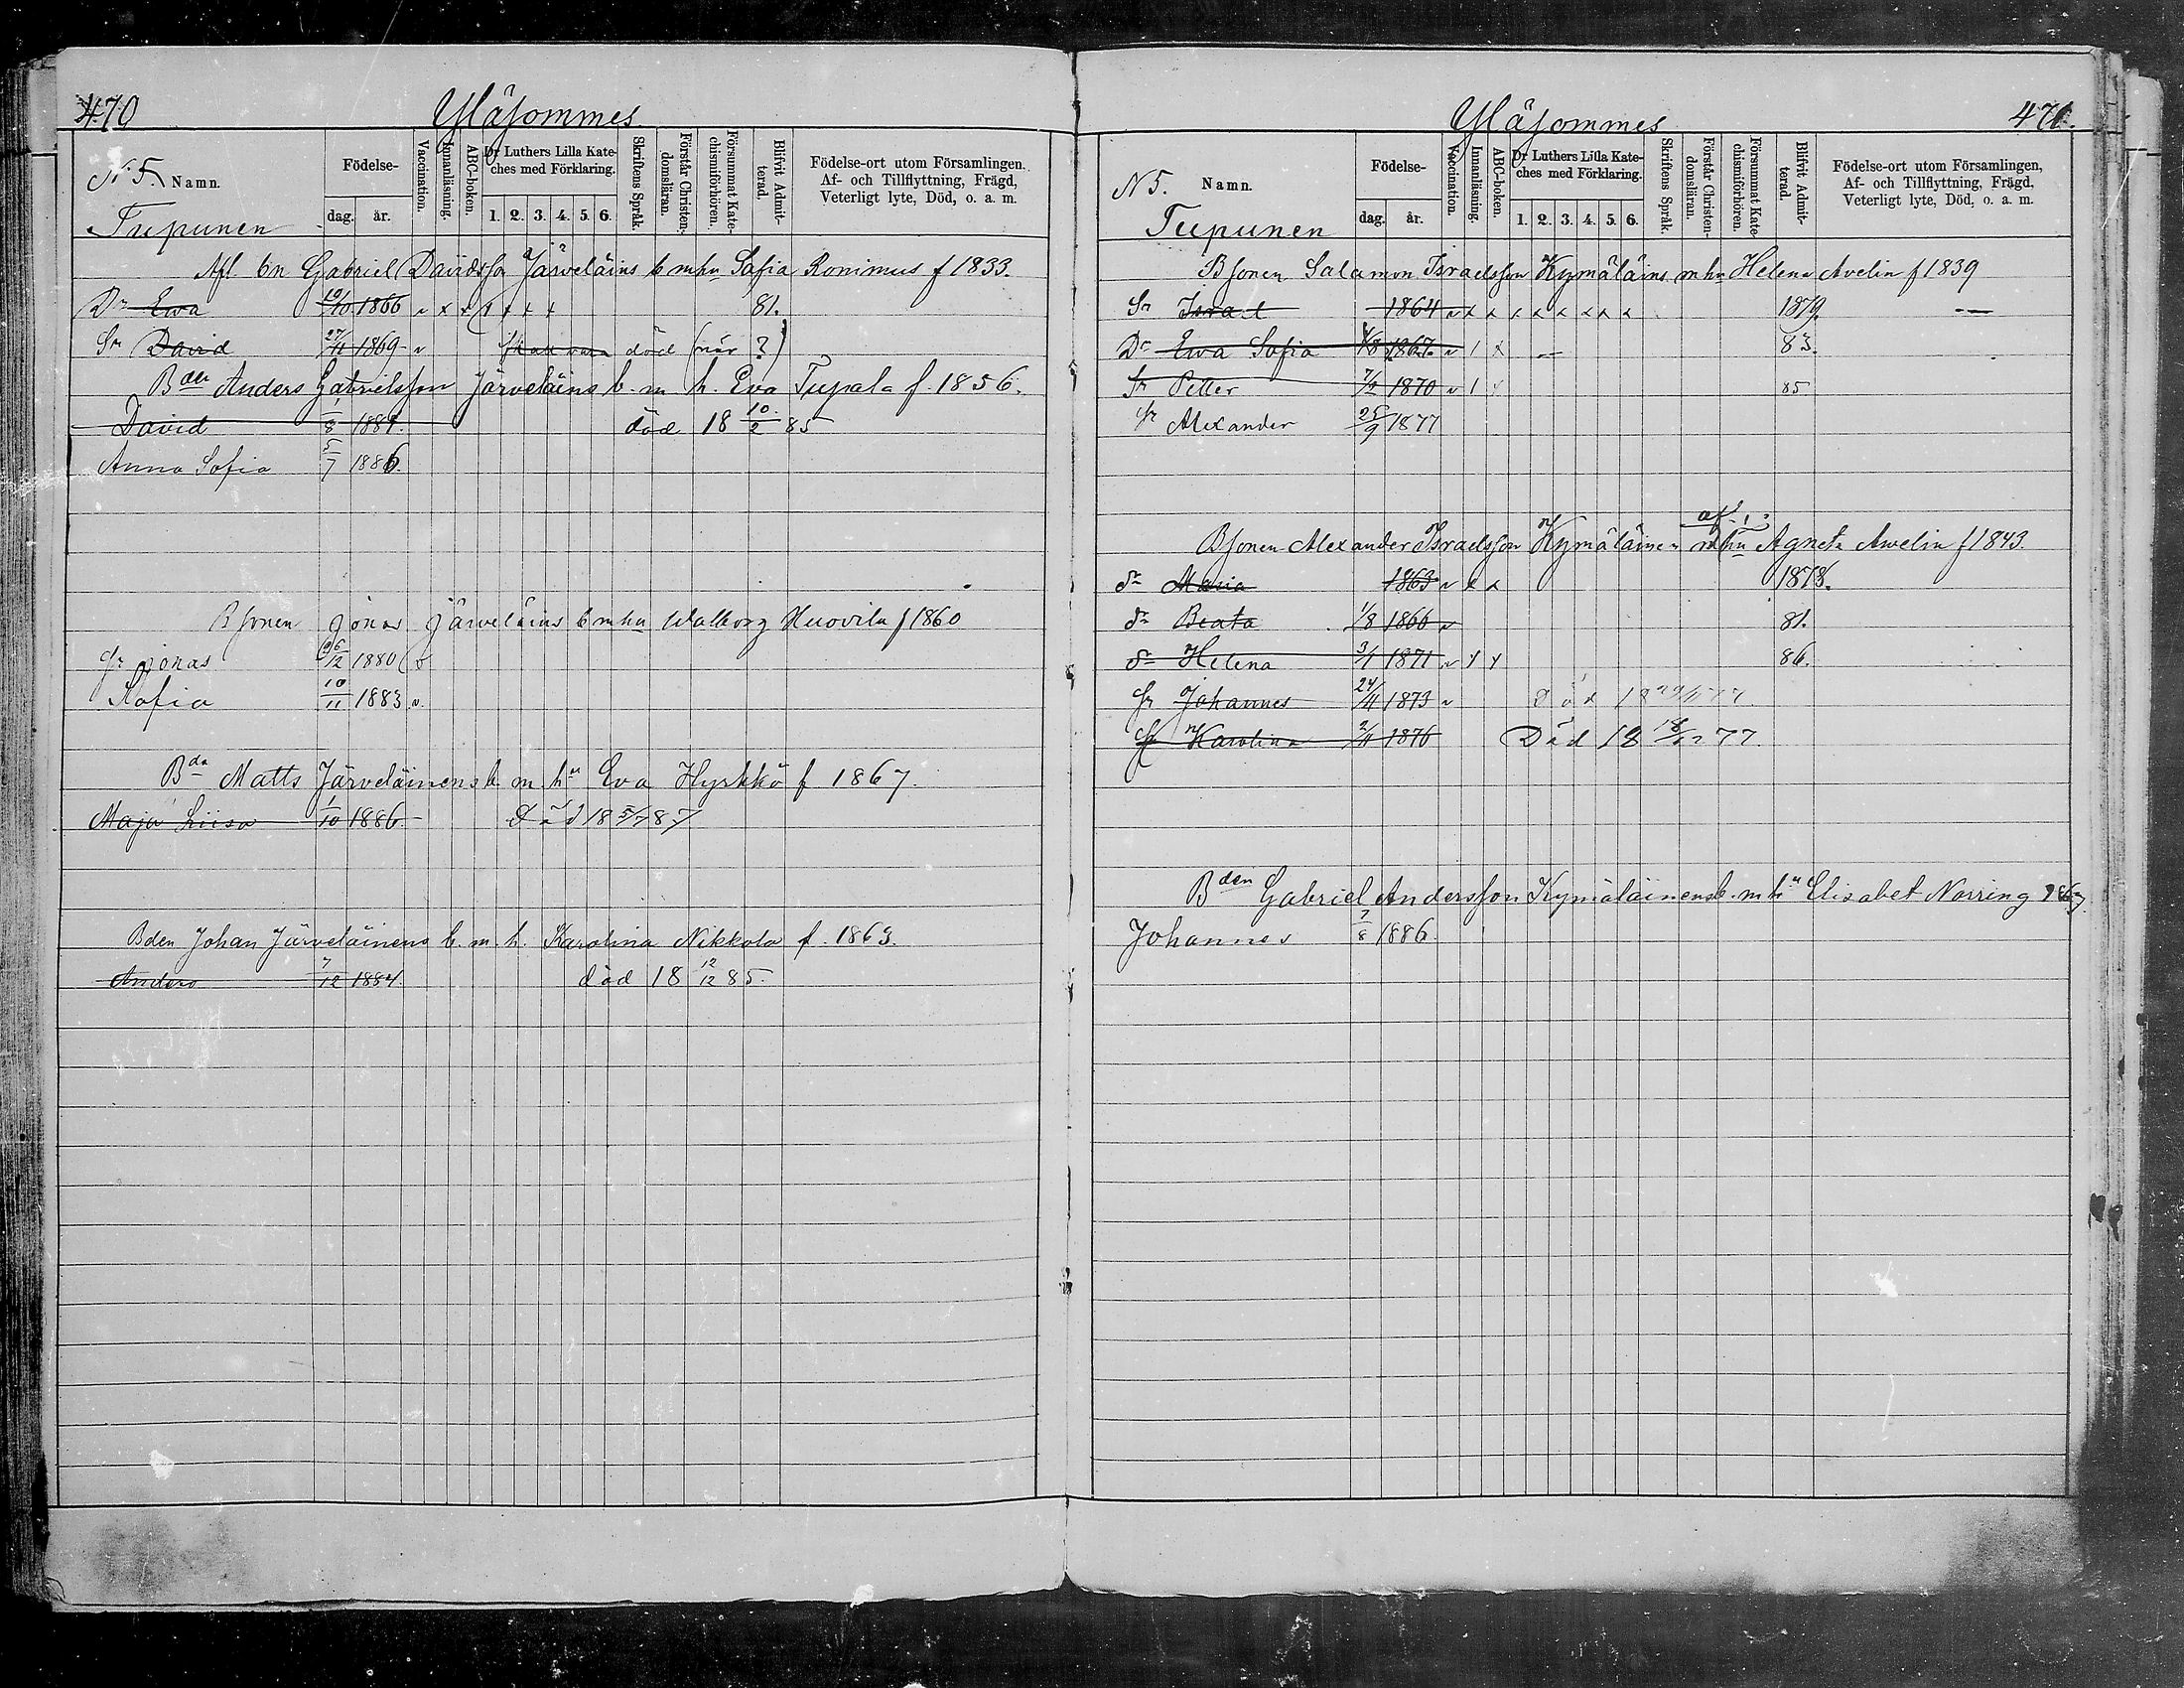 470
Yläsommes
Nr 5. Namn.
Tupunen
Födelse-
dag. år.
Vaccination.
Innanläsning.
ABC-boken.
Dr Luthers Lilla Kate-
ches med Förklaring.
1. 2. 3. 4. 5. 6.
Skriftens Språk.
Förstår Christen-
domsläran.
Försummat Kate-
chismiförhören.
Blifvit Admit-
terad.
Födelse-ort utom Församlingen.
Af- och Tillflyttning, Frägd,
Veterligt lyte, Död, o. a. m.
Afl bn Gabriel Davidsson Järveläins b mhu Sofia Ronimus f 1833.
Dr Ewa 10/10 1866 v x x x x x x 81.
Sr David 27/11 1869 v skall vara död (när ?)
Bden Anders Gabrielsson Järveläins b. m. h. Eva Tupala f. 1856.
David 1/8 1884. död 18 10/2 85
Anna Sofia 5/7 1886.
Bsonen Jonas Järveläins b mhu Walborg Huovila f 1860
Sr Jonas 26/12 1880 v
Sofia 10/11 1883 v.
Bdn Matts Järveläinens b. m. hu Eva Hyrkkö f 1867.
Maja Liisa 1/10 1886. Död 18 5/7 87
Bden Johan Järveläinens b. m. h. Karolina Nikkola f. 1863.
Anders 7/12 1884. död 18 12/12 85.
471.
Yläsommes
N 5. Namn.
Tupunen
Födelse-
dag. år.
Vaccination.
Innanläsning.
ABC-boken.
Dr Luthers Lilla Kate-
ches med Förklaring.
1. 2. 3. 4. 5. 6.
Skriftens Språk.
Förstår Christen-
domsläran.
Försummat Kate-
chismiförhören.
Blifvit Admit-
terad.
Födelse-ort utom Församlingen,
Af- och Tillflyttning, Frägd,
Veterligt lyte, Död, o. a. m.
Bsonen Salamon Israelsson Kymäläins mhu Helena Avelin f 1839
Sr Israel 1864 v x x x x x x x x 1879. —
Dr Ewa Sofia 1/8 1867. v 1 x — 83.
Sr Petter 7/2 1870 v 1 x 85
Sr Alexander 25/9 1877
af.
Bsonen Alexander Israelsson Kymäläinen mhu Agneta Awelin f 1843.
dr Maria 1863 v x x 1878.
dr Beata 1/8 1866 v 81.
dr Helena 3/1 1871 v x x 86.
Sr Johannes 24/11 1873 v Död 18 77.
Karolina 2/11 1876 Död 18 18/12 77.
Bden Gabriel Andersson Kymäläinens b. m hu Elisabet Norring 1867
Johannes 7/8 1886.